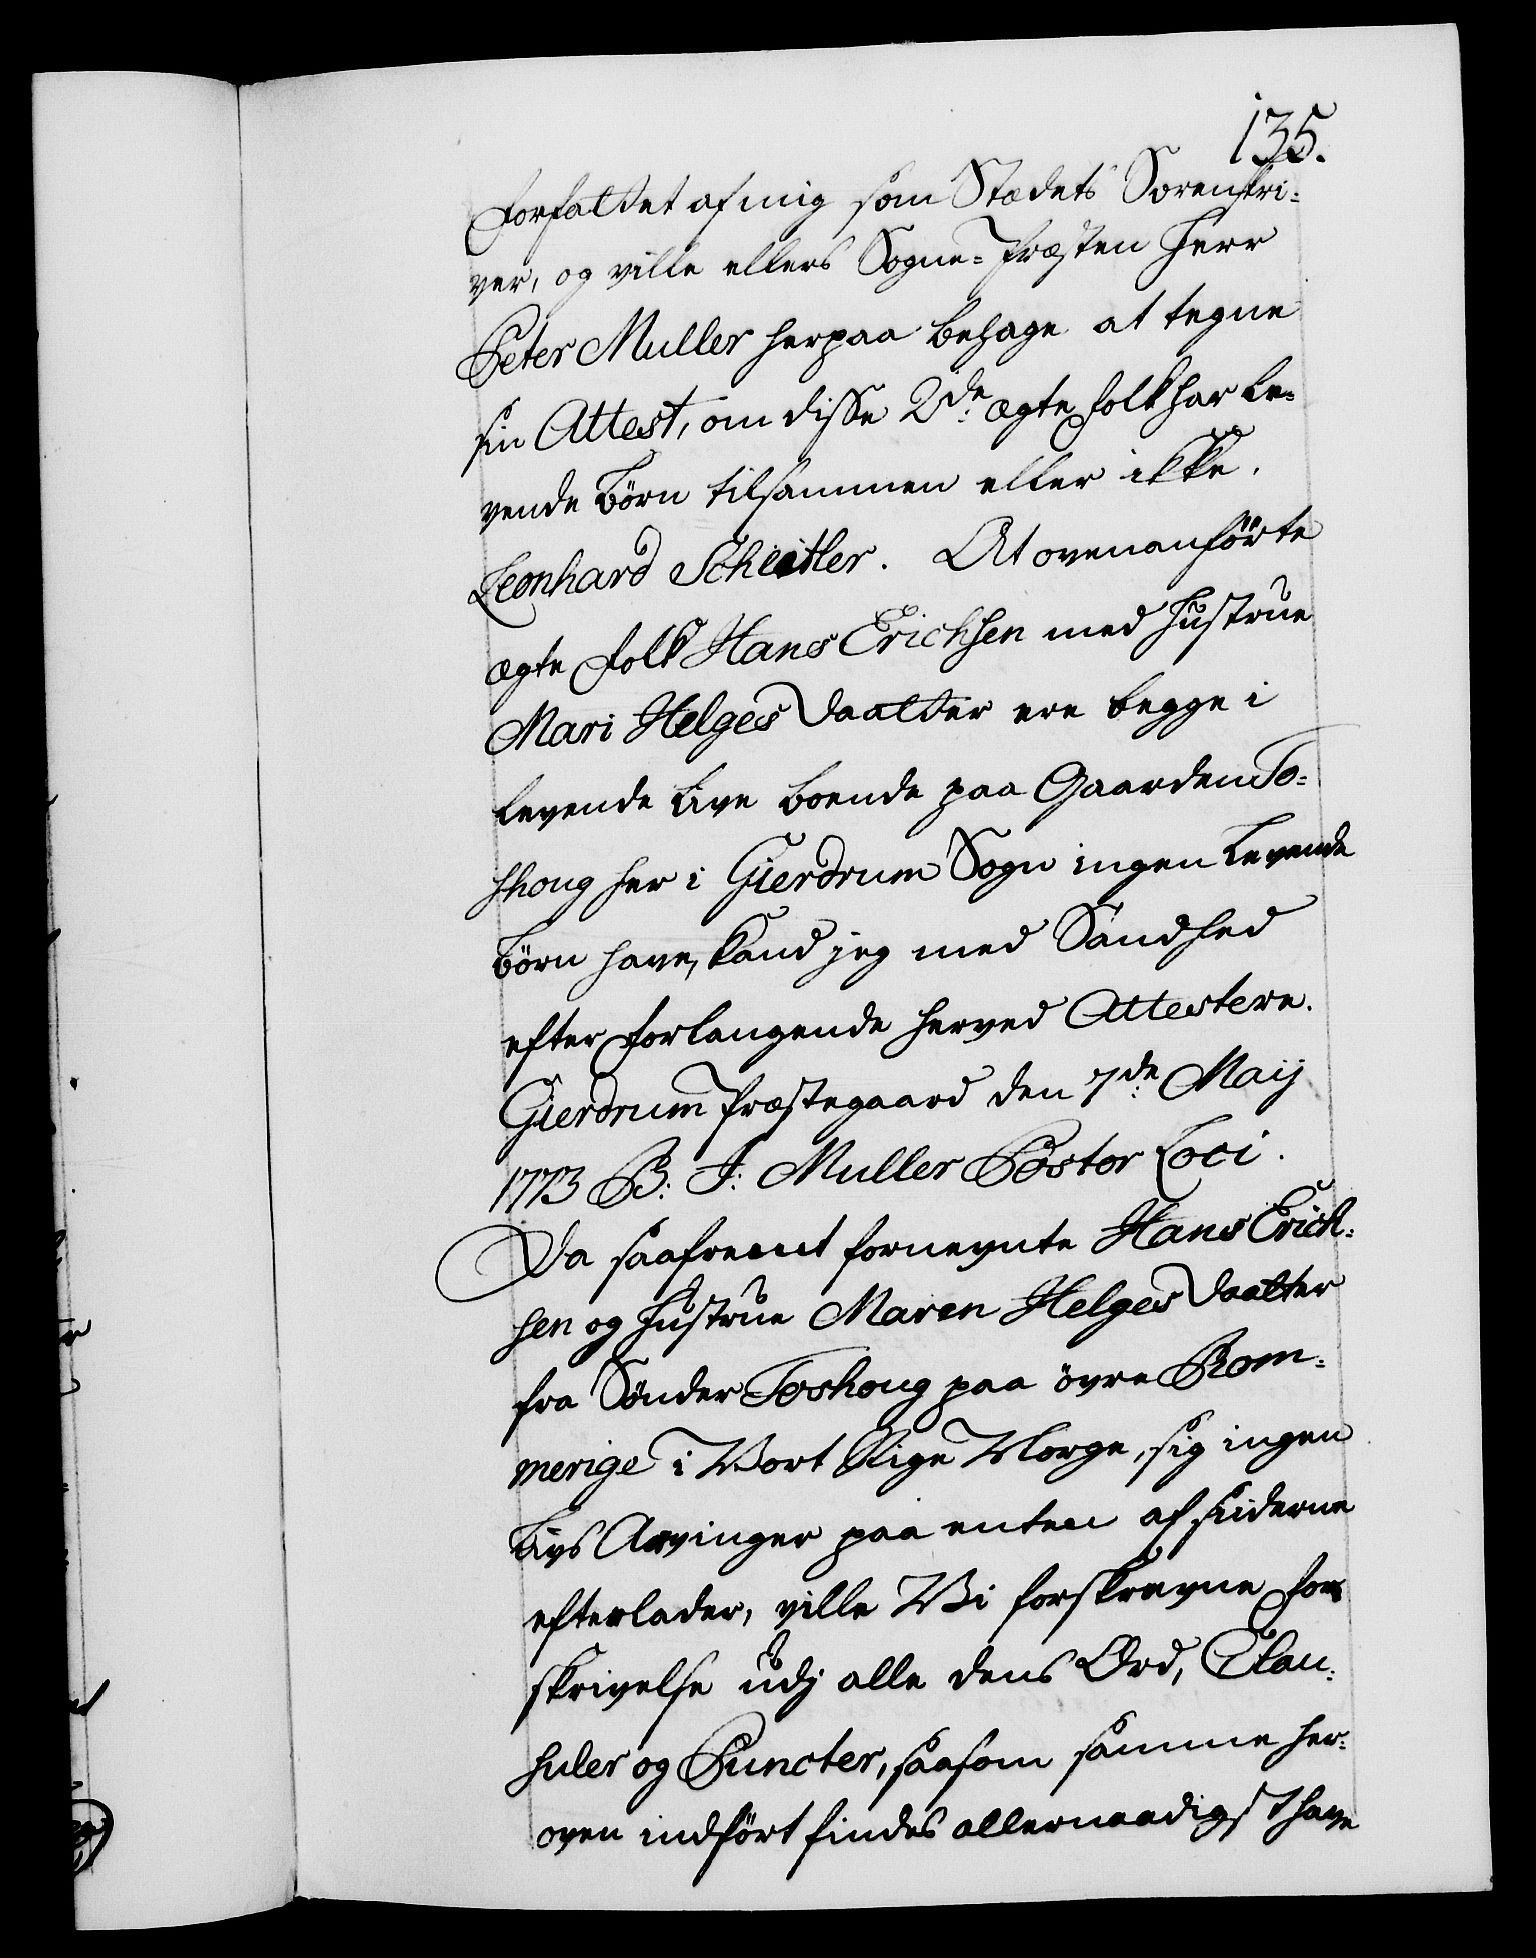 135.
forfattet af mig som Stædets Sorenskri-
ver, og ville ellers Sogne-Præsten Herr
Peter Muller herpaa behage at tegne
sin Attest, om disse 2de: ægte folk har le-
vende Börn tilsammen eller ikke.
Leonhard Scheitler. At ovenanförte
ægte folk Hans Erichsen med Hustrue
Mari Helges Daatter ere begge i
levende Live boende paa Gaarden To-
shoug her i Gierdrum Sogn ingen levende
Börn have, kand jeg med Sandhed
efter forlangende herved Attestere.
Gierdrum Præstegaard den 7de: Maij
1773 B: J: Muller Pastor Loci.
Da saafremt fornevnte Hans Erich-
sen og Hustrue Maren Helges Daatter
fra Sönder Toshoug paa övre Rom-
merige i Vort Rige Norge, sig ingen
Livs Arvinger paa enten af siderne
efterlader, ville Vi forskrevne for
skrivelse udj alle dens Ord, Clau-
suler og Puncter, saasom samme her-
oven indfört findes allernaadigst have